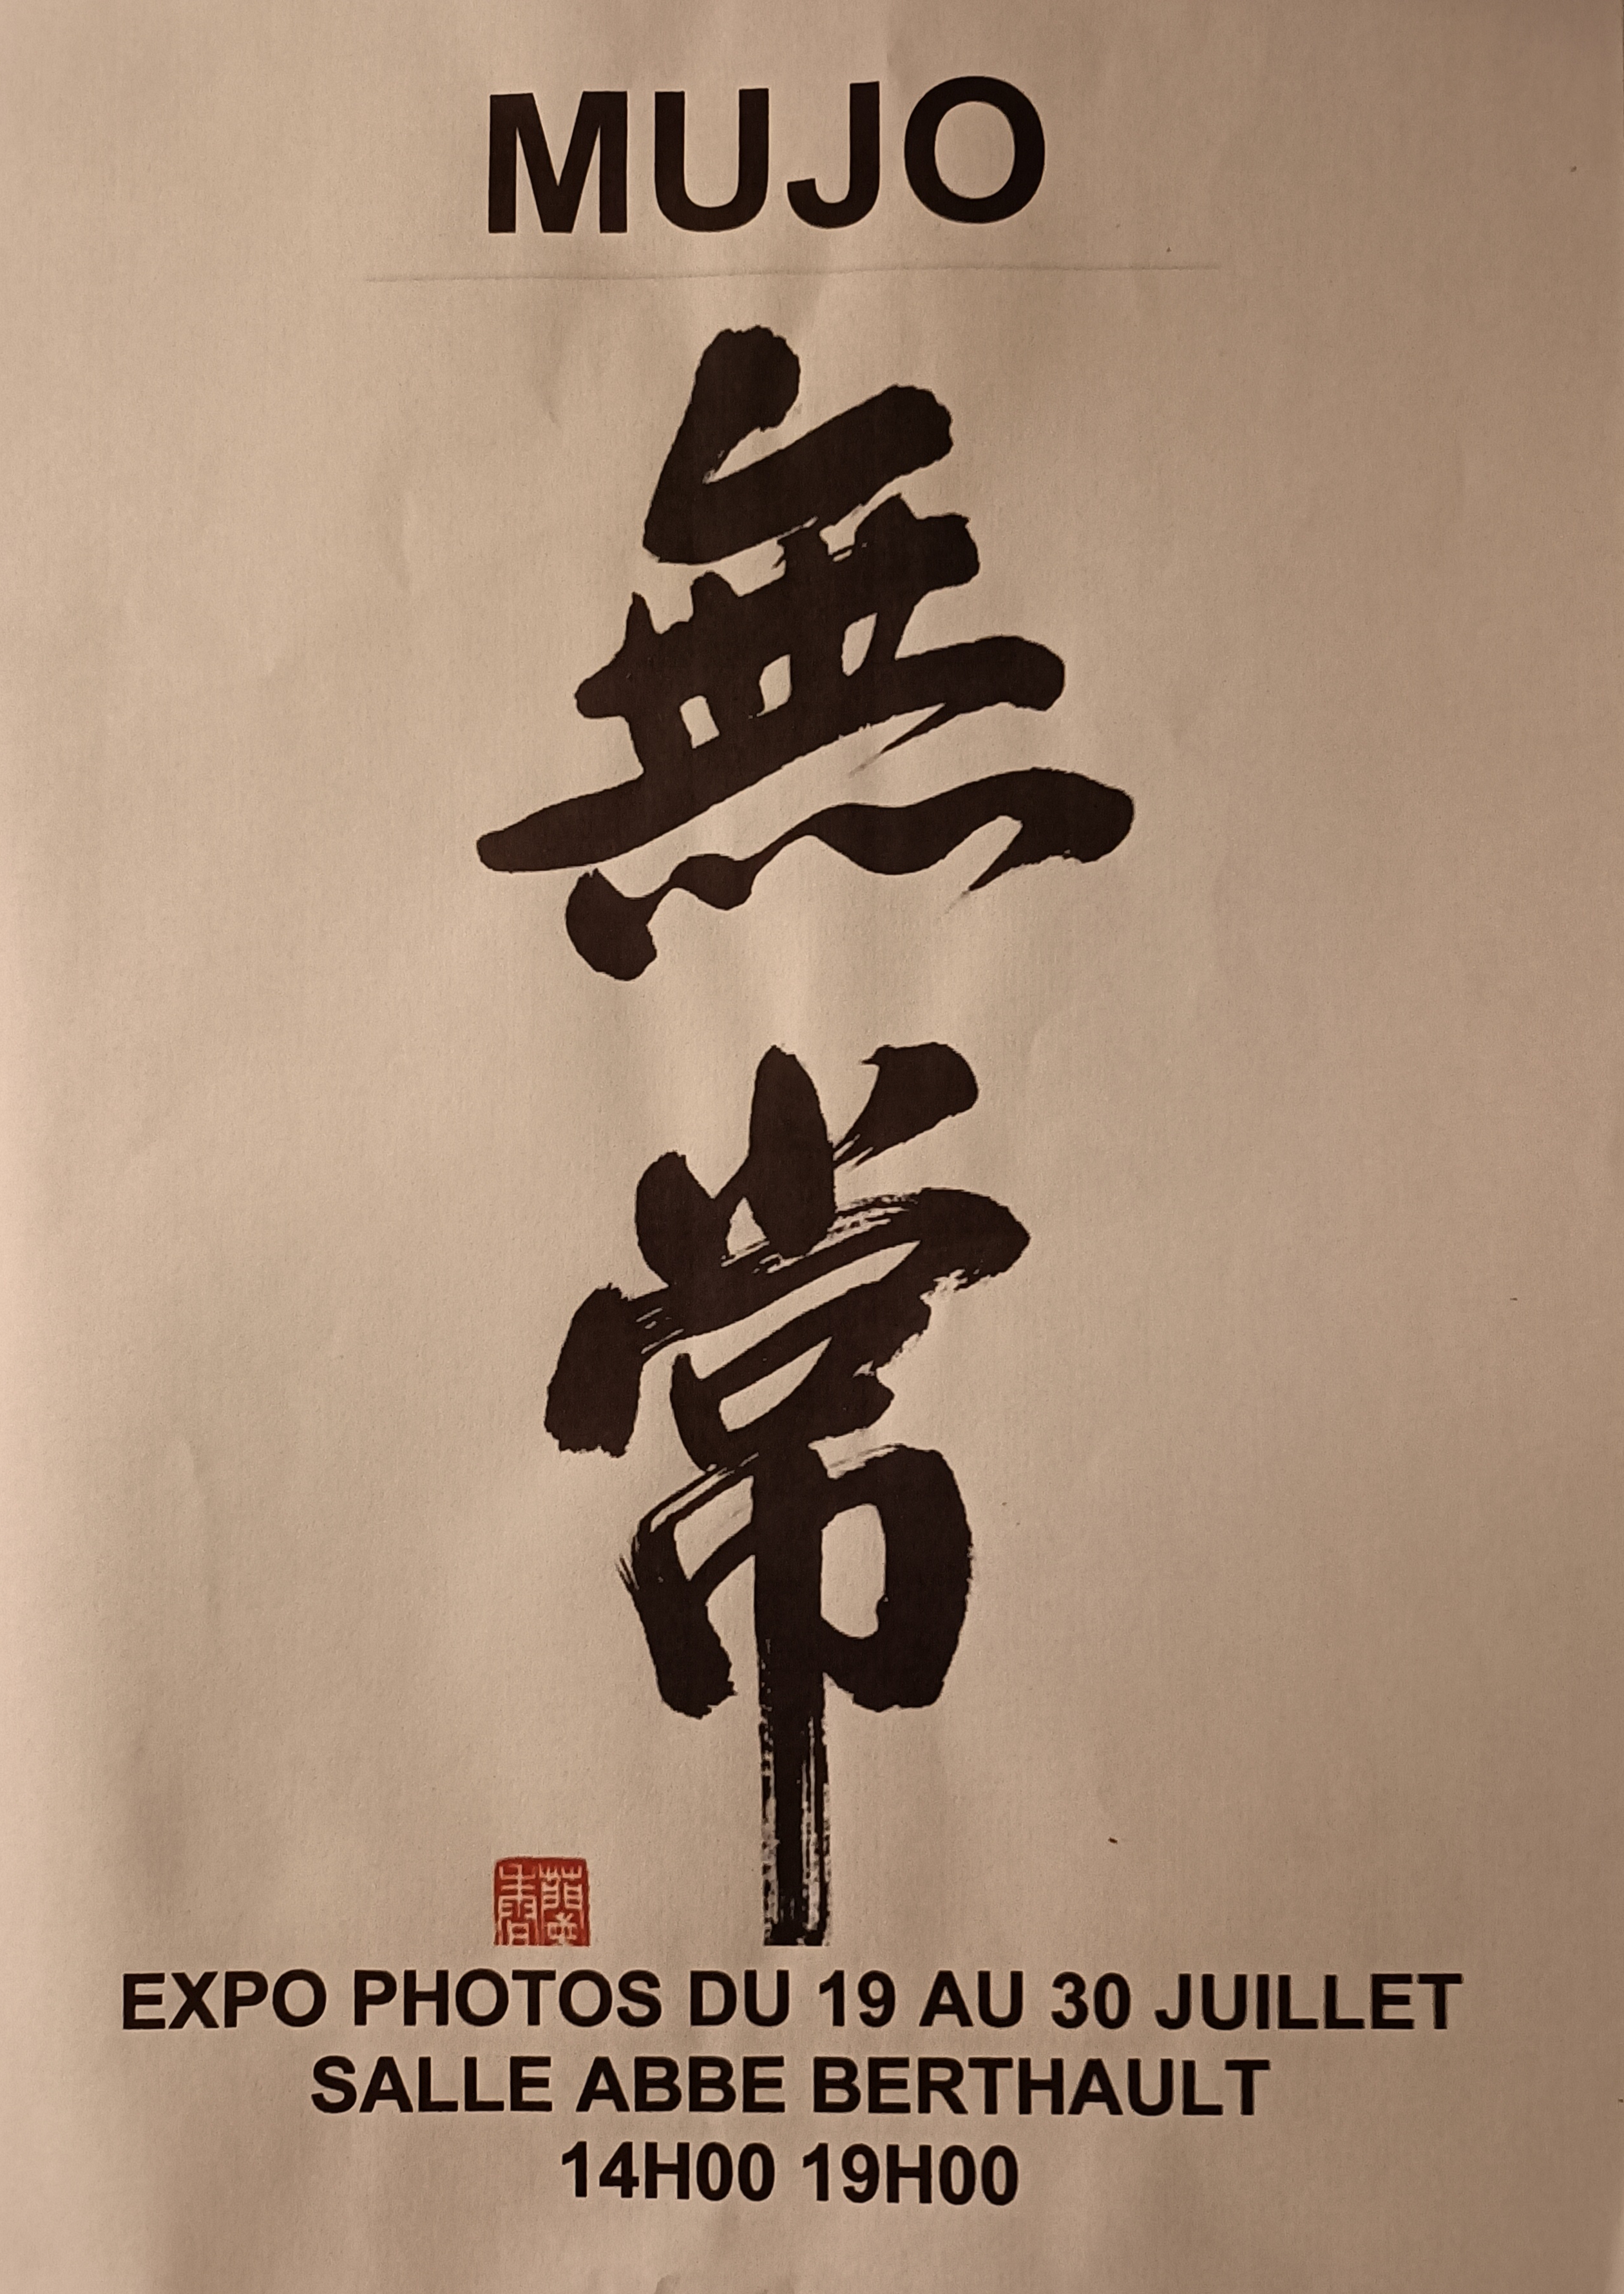 MUJO
無
常
EXPO PHOTOS DU 19 AU 30 JUILLET
SALLE ABBE BERTHAULT
14H00 19H00